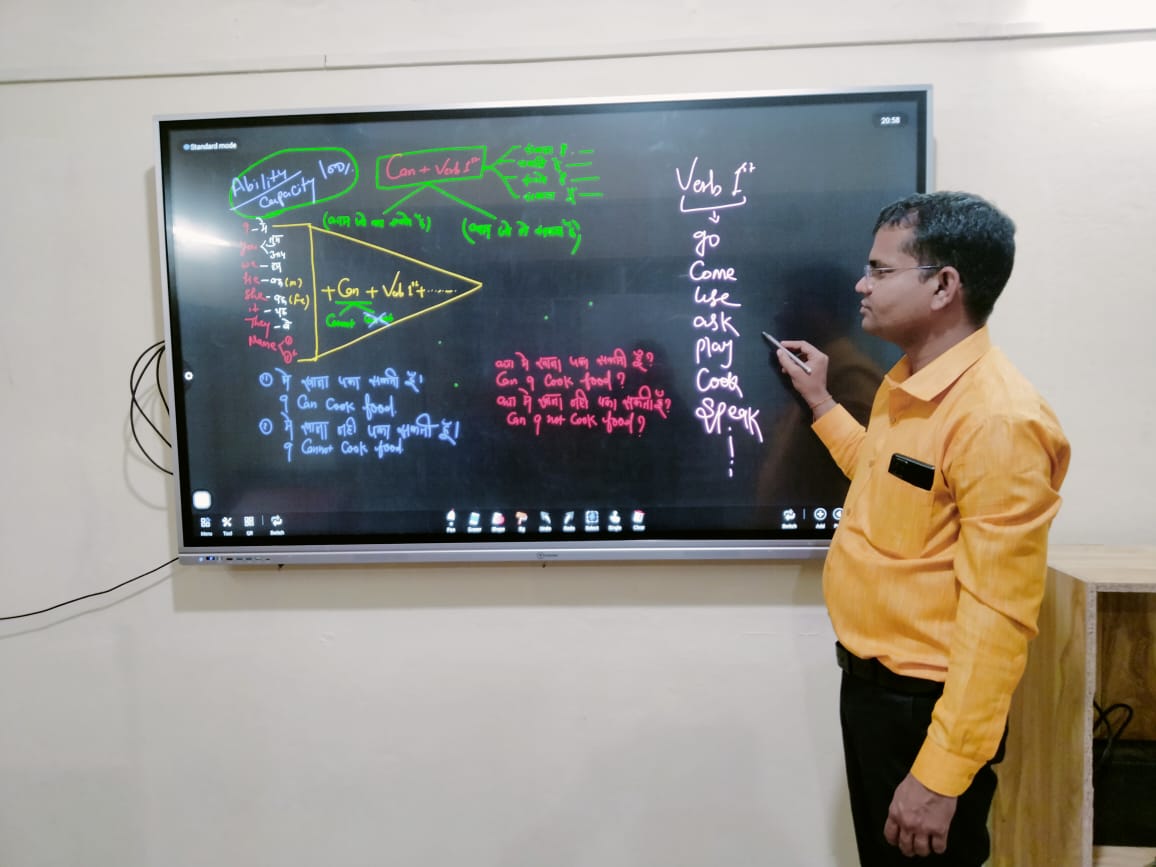 Standard mode
20:58
Ability/Capacity 100%
Can + Verb 1st
Verb 1st
I - मैं
You < तुम
आप
We - हम
He - वह (m)
She - वह (Fe)
it - यह
They - वे
Name < ① ②
+ Can + Verb 1st + ........
Cannot
① मै खाना पका सकती हूँ।
I Can Cook food
② मै खाना नही पका सकती हूँ।
I Cannot Cook food.
क्या मै खाना पका सकती हूँ?
Can I Cook food ?
क्या मै खाना नही पका सकती हूँ?
Can I not Cook food ?
go
Come
use
ask
play
Cook
Speak
Menu
Tool
QR
Switch
Pen
Switch
Add